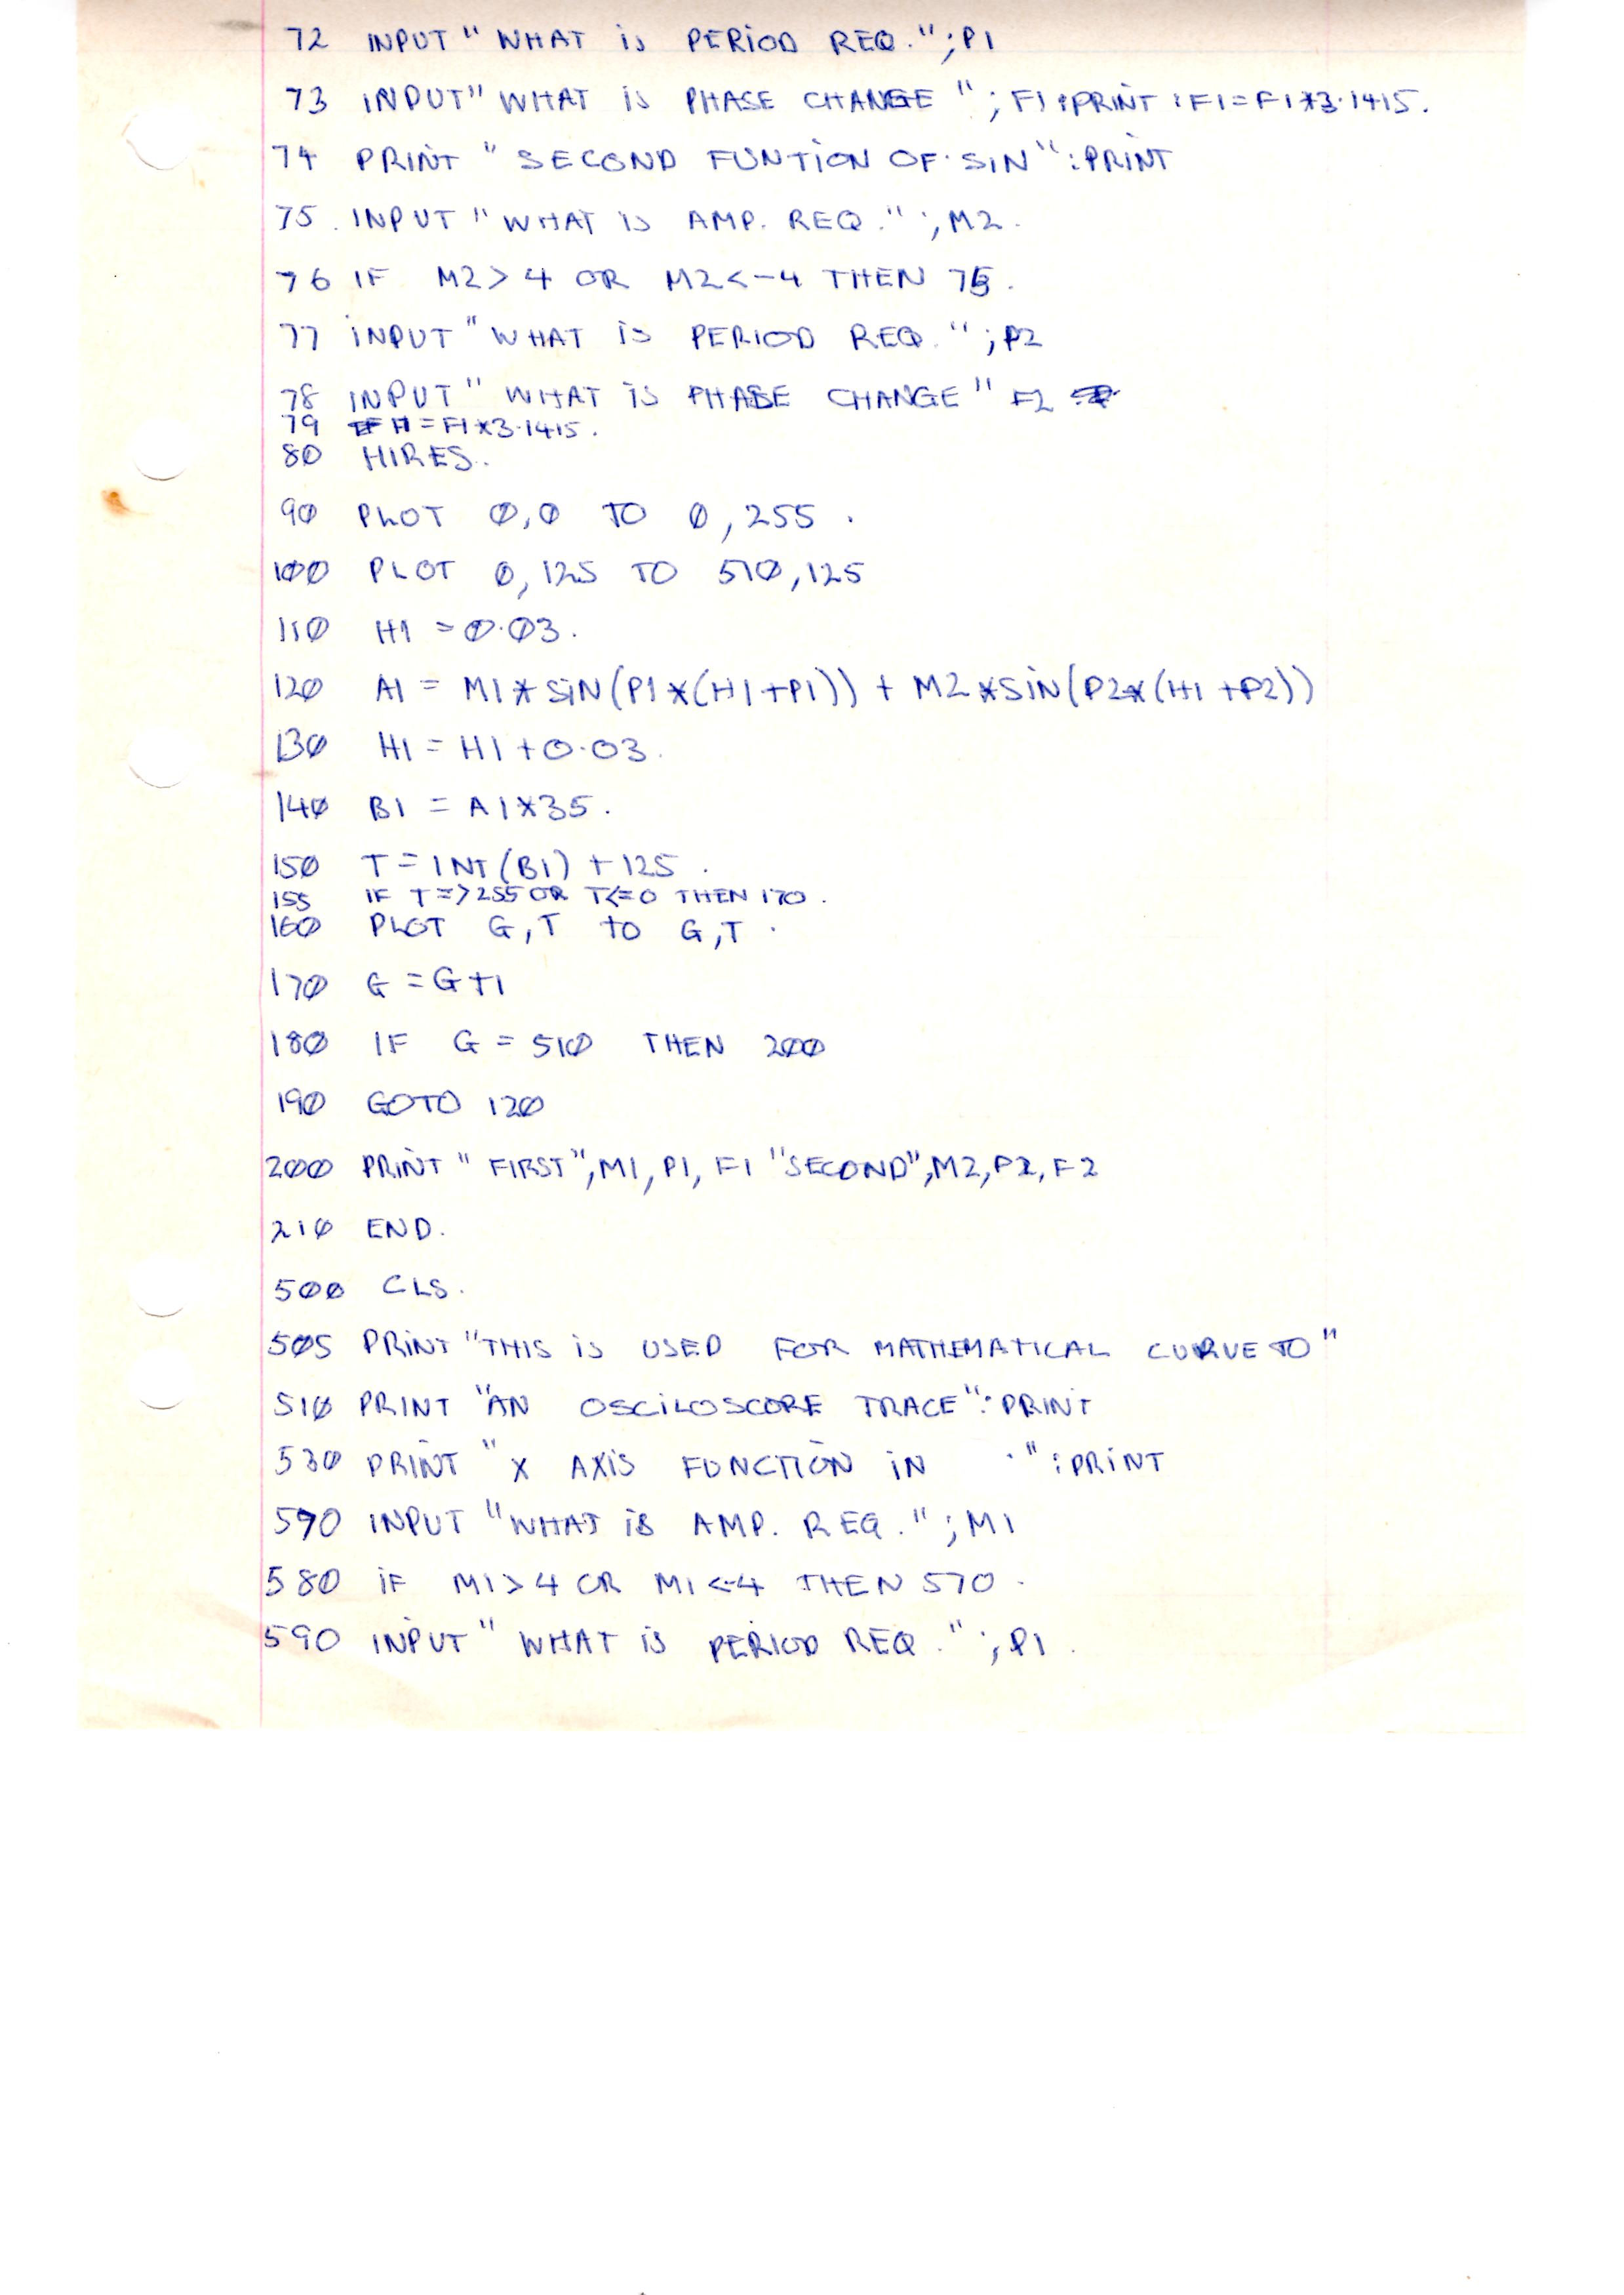 72 INPUT "WHAT is PERIOD REQ.";P1
73 INPUT" WHAT is PHASE CHANGE "; F1:PRINT:F1=F1*3.1415.
74 PRINT "SECOND FUNTION OF SIN":PRINT
75 INPUT "WHAT is AMP. REQ.";M2.
76 IF M2>4 OR M2<-4 THEN 75.
77 INPUT "WHAT is PERIOD REQ.";P2
78 INPUT "WHAT is PHASE CHANGE" F2
79 =F1*3.1415.
80 HIRES.
90 PLOT 0,0 TO 0,255.
100 PLOT 0,125 TO 510,125
110 H1 = 0.03.
120 A1 = M1*SIN(P1*(H1+P1)) + M2*SIN(P2*(H1+P2))
130 H1 = H1+0.03.
140 B1 = A1*35.
150 T = INT(B1)+125.
155 IF T=>255 OR T<=0 THEN 170.
160 PLOT G,T to G,T.
170 G = G+1
180 IF G = 510 THEN 200
190 GOTO 120
2000 PRINT "FIRST",M1,P1,F1 "SECOND",M2,P2,F2
210 END.
500 CLS.
505 PRINT "THIS is USED FOR MATHEMATICAL CURVE TO"
510 PRINT "AN OSCILOSCOPE TRACE":PRINT
530 PRINT "X AXIS FUNCTION IN .":PRINT
570 INPUT "WHAT is AMP. REQ.";M1
580 IF M1>4 OR M1<-4 THEN 570.
590 INPUT "WHAT is PERIOD REQ.";P1.